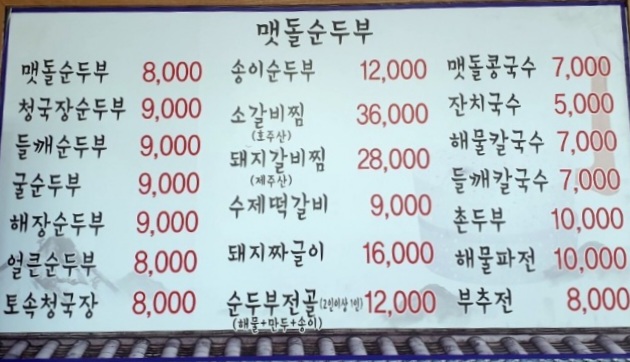 맷돌순두부
맷돌순두부 8,000
청국장순두부 9,000
들깨순두부 9,000
굴순두부 9,000
해장순두부 9,000
얼큰순두부 8,000
토속청국장 8,000
송이순두부 12,000
소갈비찜 36,000
(호주산)
돼지갈비찜 28,000
(제주산)
수제떡갈비 9,000
돼지짜글이 16,000
순두부전골(2인이상 1인) 12,000
(해물+만두+송이)
맷돌콩국수 7,000
잔치국수 5,000
해물칼국수 7,000
들깨칼국수 7,000
촌두부 10,000
해물파전 10,000
부추전 8,000